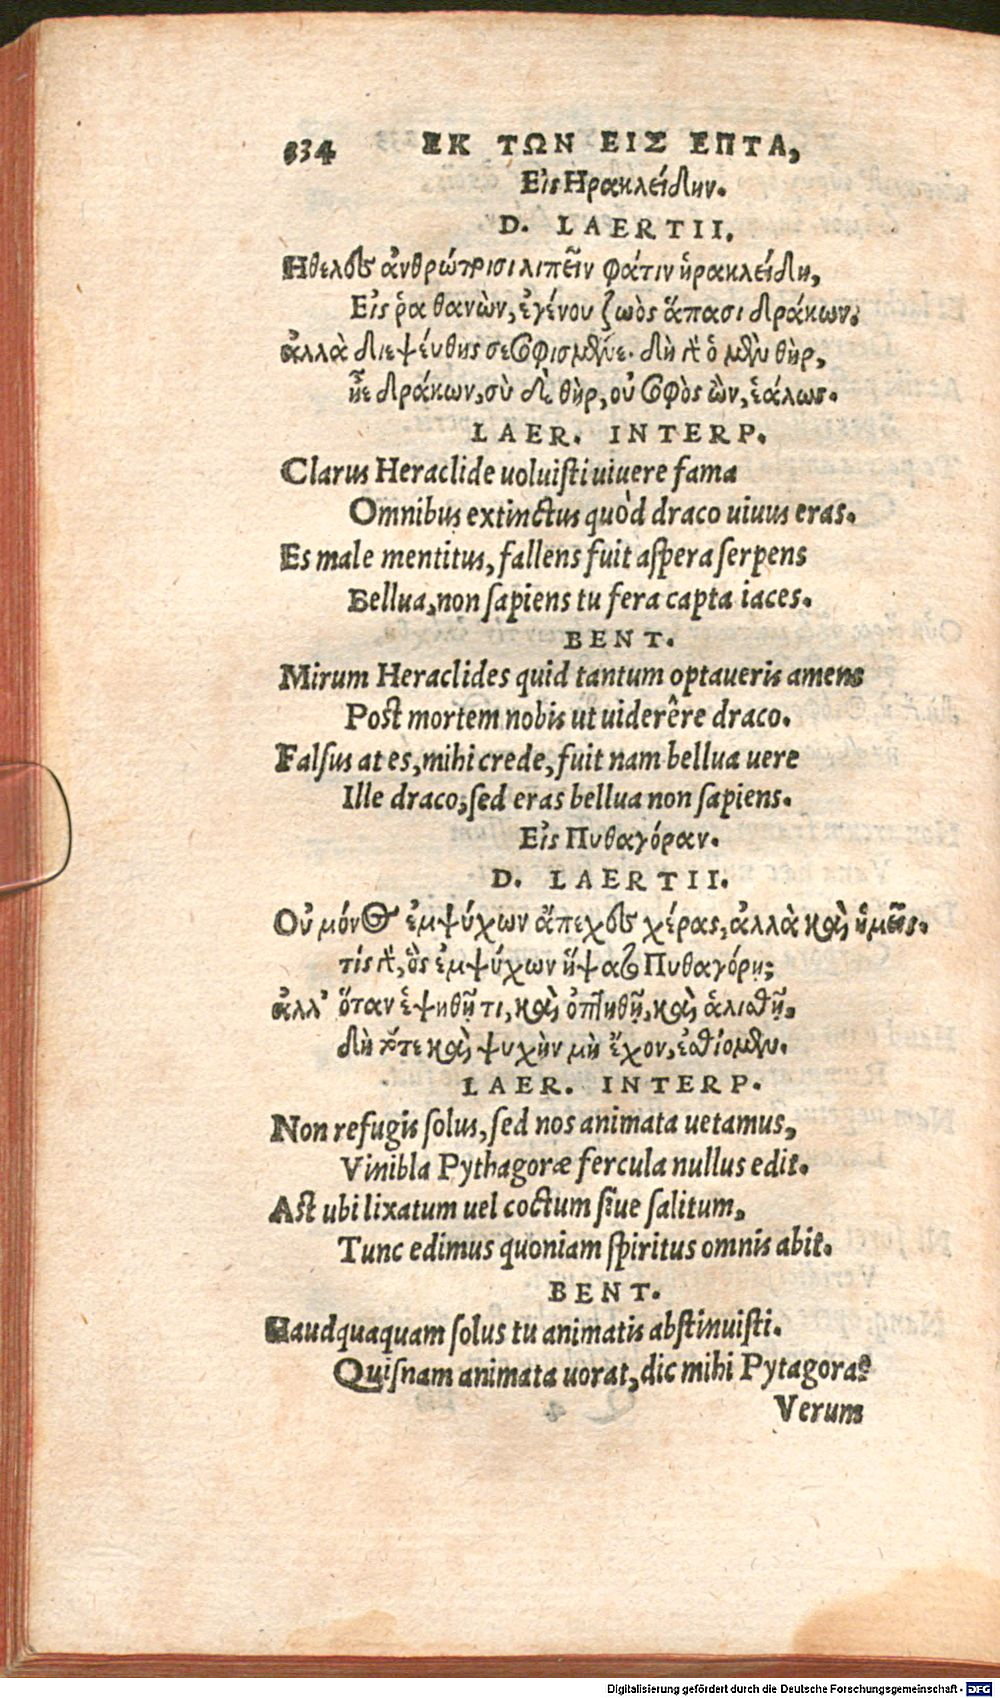 834 ΕΚ ΤΩΝ ΕΙΣ ΕΠΤΑ,
Εἰς Ηρακλείδην.
D. LAERTII.
Ηθελες ἀνθρώποισι λιπεῖν φάτιν ἡρακλείδη,
Εἰς ῥα θανὼν, ἐγένου ζωὸς ἅπασι δράκων.
ἀλλὰ διεψεύθης σεσοφισμένε. δὴ γὰρ ὁ μὲν θὴρ,
ἦε δράκων, σὺ δὲ θὴρ, οὐ σοφὸς ὢν, ἑάλως.
LAER. INTERP.
Clarus Heraclide uoluiſti uiuere fama
Omnibus extinctus quòd draco uiuus eras.
Es male mentitus, fallens fuit aſpera ſerpens
Bellua, non ſapiens tu fera capta iaces.
BENT.
Mirum Heraclides quid tantum optaueris amens
Poſt mortem nobis ut uiderêre draco.
Falſus at es, mihi crede, fuit nam bellua uere
Ille draco, ſed eras bellua non ſapiens.
Εἰς Πυθαγόραν.
D. LAERTII.
Οὐ μόνος ἐμψύχων ἄπεχες χέρας, ἀλλὰ καὶ ἡμεῖς.
τίς γὰρ, ὃς ἐμψύχων ἥψατο Πυθαγόρη;
ἀλλ' ὅταν ἑψηθῇ τι, καὶ ὀπτηθῇ, καὶ ἁλισθῇ,
Δὴ τότε καὶ ψυχὴν μὴ ἔχον, ἐσθίομεν.
LAER. INTERP.
Non refugis ſolus, ſed nos animata uetamus,
Vinibla Pythagoræ fercula nullus edit.
Aſt ubi lixatum uel coctum ſiue ſalitum,
Tunc edimus quoniam ſpiritus omnis abit.
BENT.
Haudquaquam ſolus tu animatis abſtinuiſti.
Quiſnam animata uorat, dic mihi Pytagora?
Verum
Digitalisierung gefördert durch die Deutsche Forschungsgemeinschaft - DFG